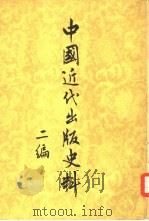 中國近代出版史料
二編